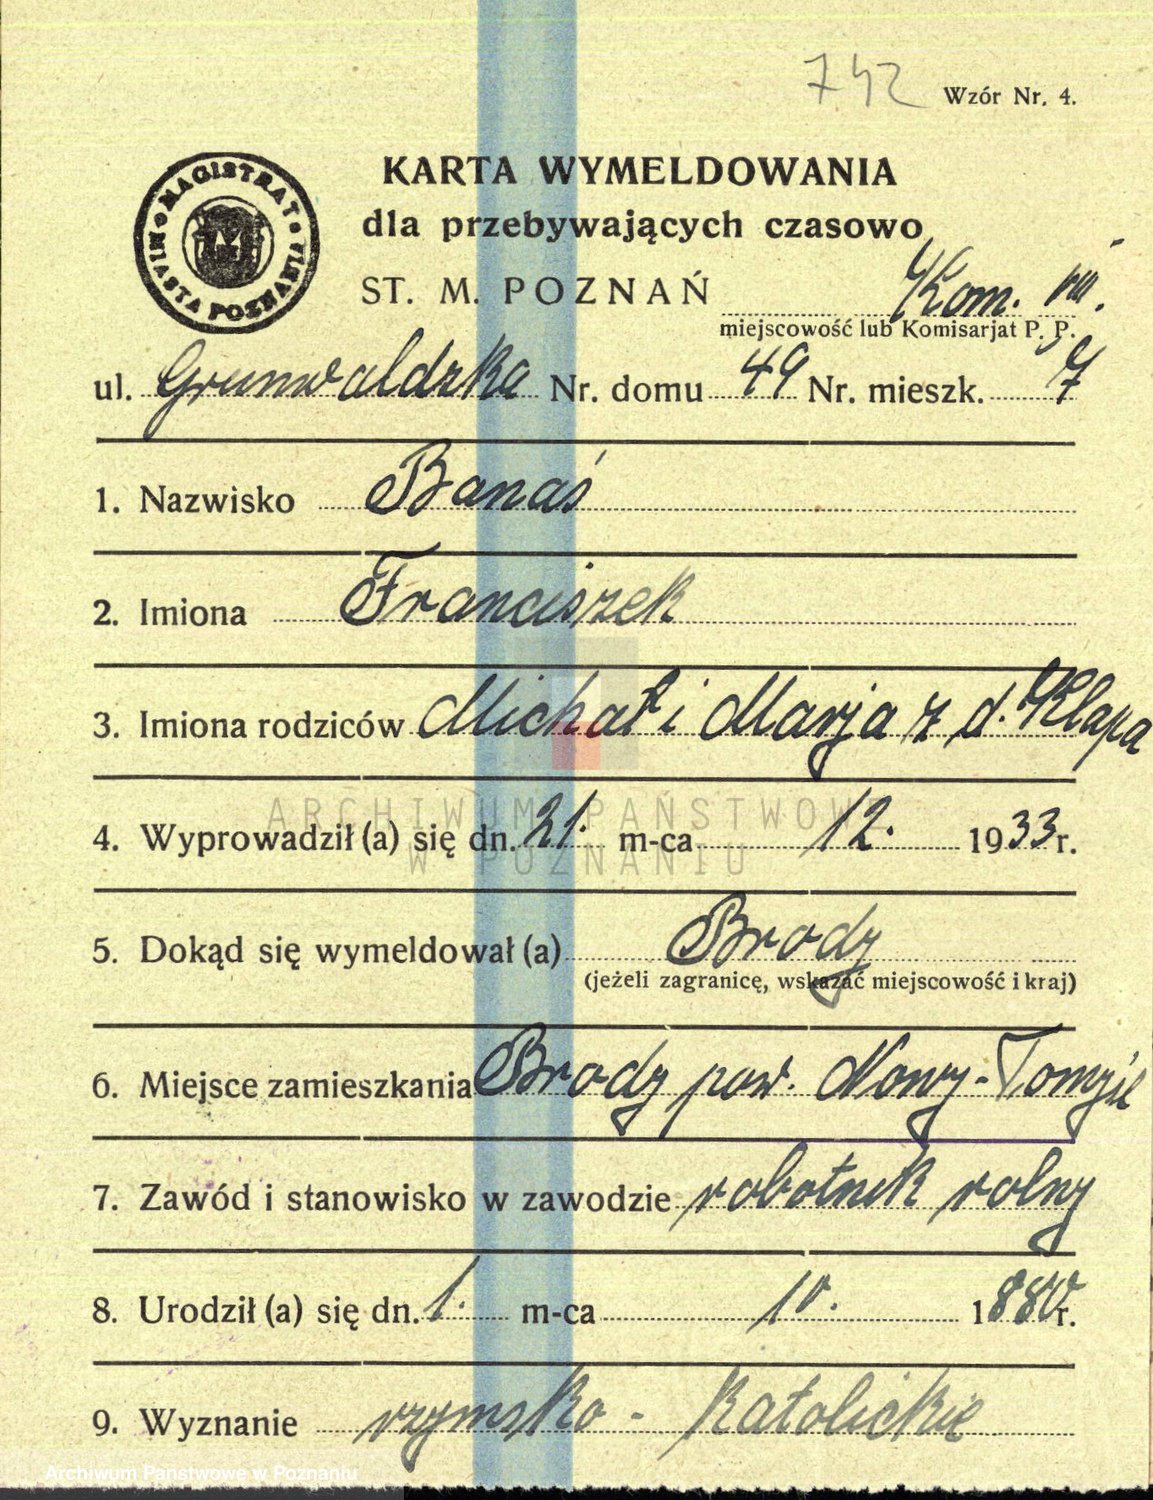 742
Wzór Nr. 4.
MAGISTRAT MIASTA POZNANIA
KARTA WYMELDOWANIA
dla przebywających czasowo
ST. M. POZNAŃ Kom. VII.
miejscowość lub Komisarjat P. P.
ul. Grunwaldzka Nr. domu 49 Nr. mieszk. 7
1. Nazwisko Banaś
2. Imiona Franciszek
3. Imiona rodziców Michał i Marja z d. Kłapa
ARCHIWUM PAŃSTWOWE
4. Wyprowadził (a) się dn. 21. m-ca 12. 1933 r.
W POZNANIU
5. Dokąd się wymeldował (a) Brody
(jeżeli zagranicę, wskazać miejscowość i kraj)
6. Miejsce zamieszkania Brody pow. Nowy-Tomyśl
7. Zawód i stanowisko w zawodzie robotnik rolny
8. Urodził (a) się dn. 1. m-ca 10. 1880 r.
9. Wyznanie rzymsko - katolickie
Archiwum Państwowe w Poznaniu